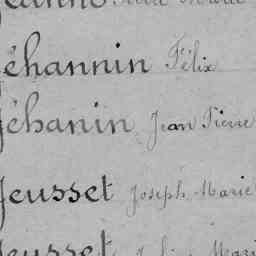 Jéhannin Félix
Jéhanin Jean Pierre
Jeusset Joseph Marie
Jeusset